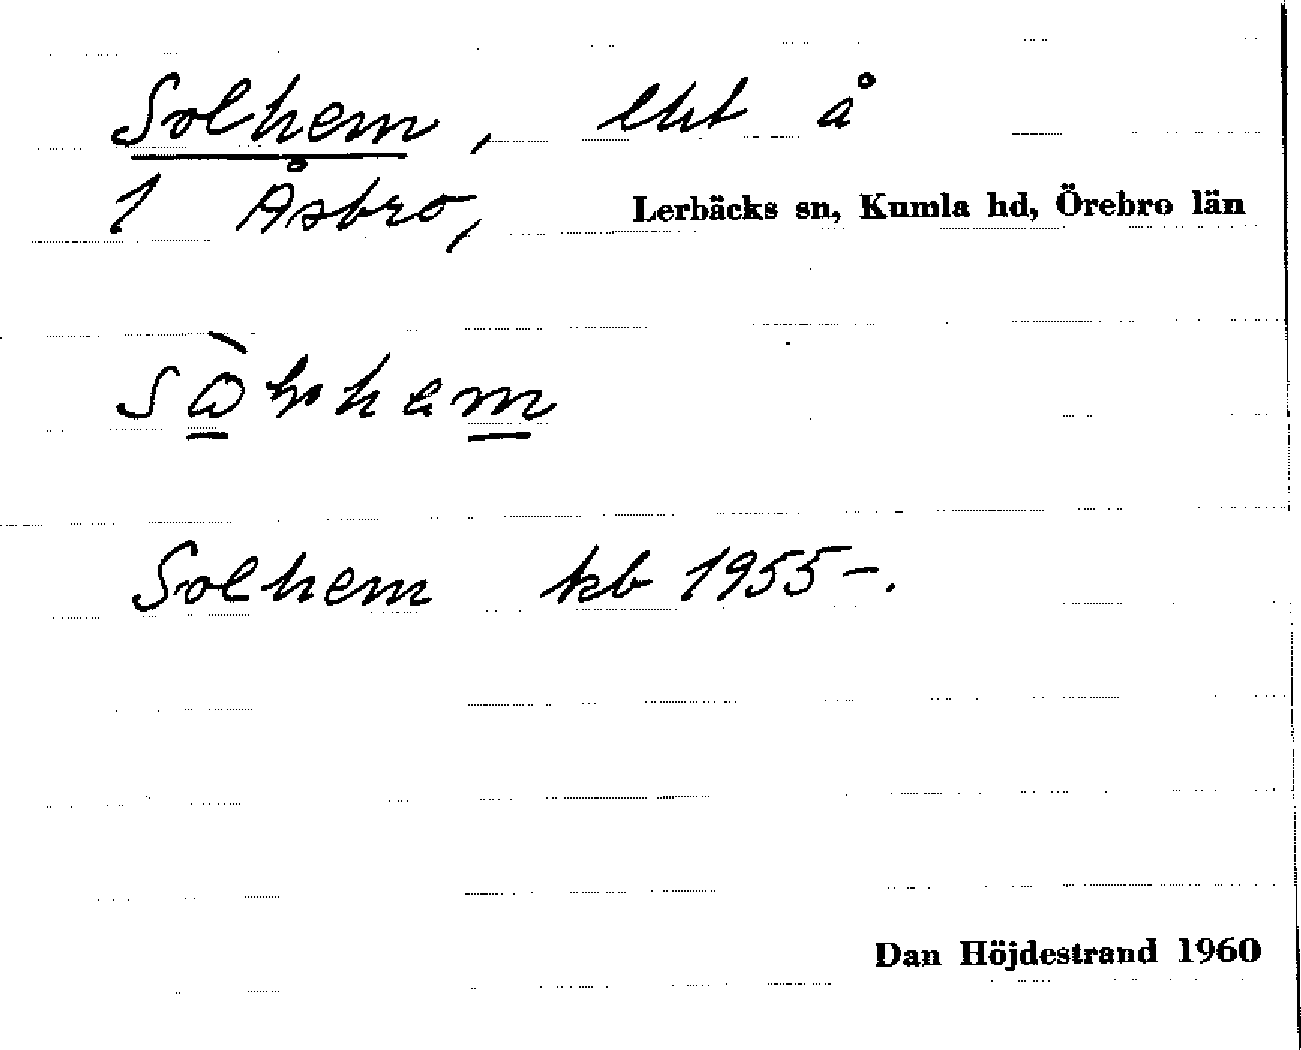 Solhem, lht å
1 Åsbro, Lerbäcks sn, Kumla hd, Örebro län
Solhem kb 1955-.
Dan Höjdestrand 1960